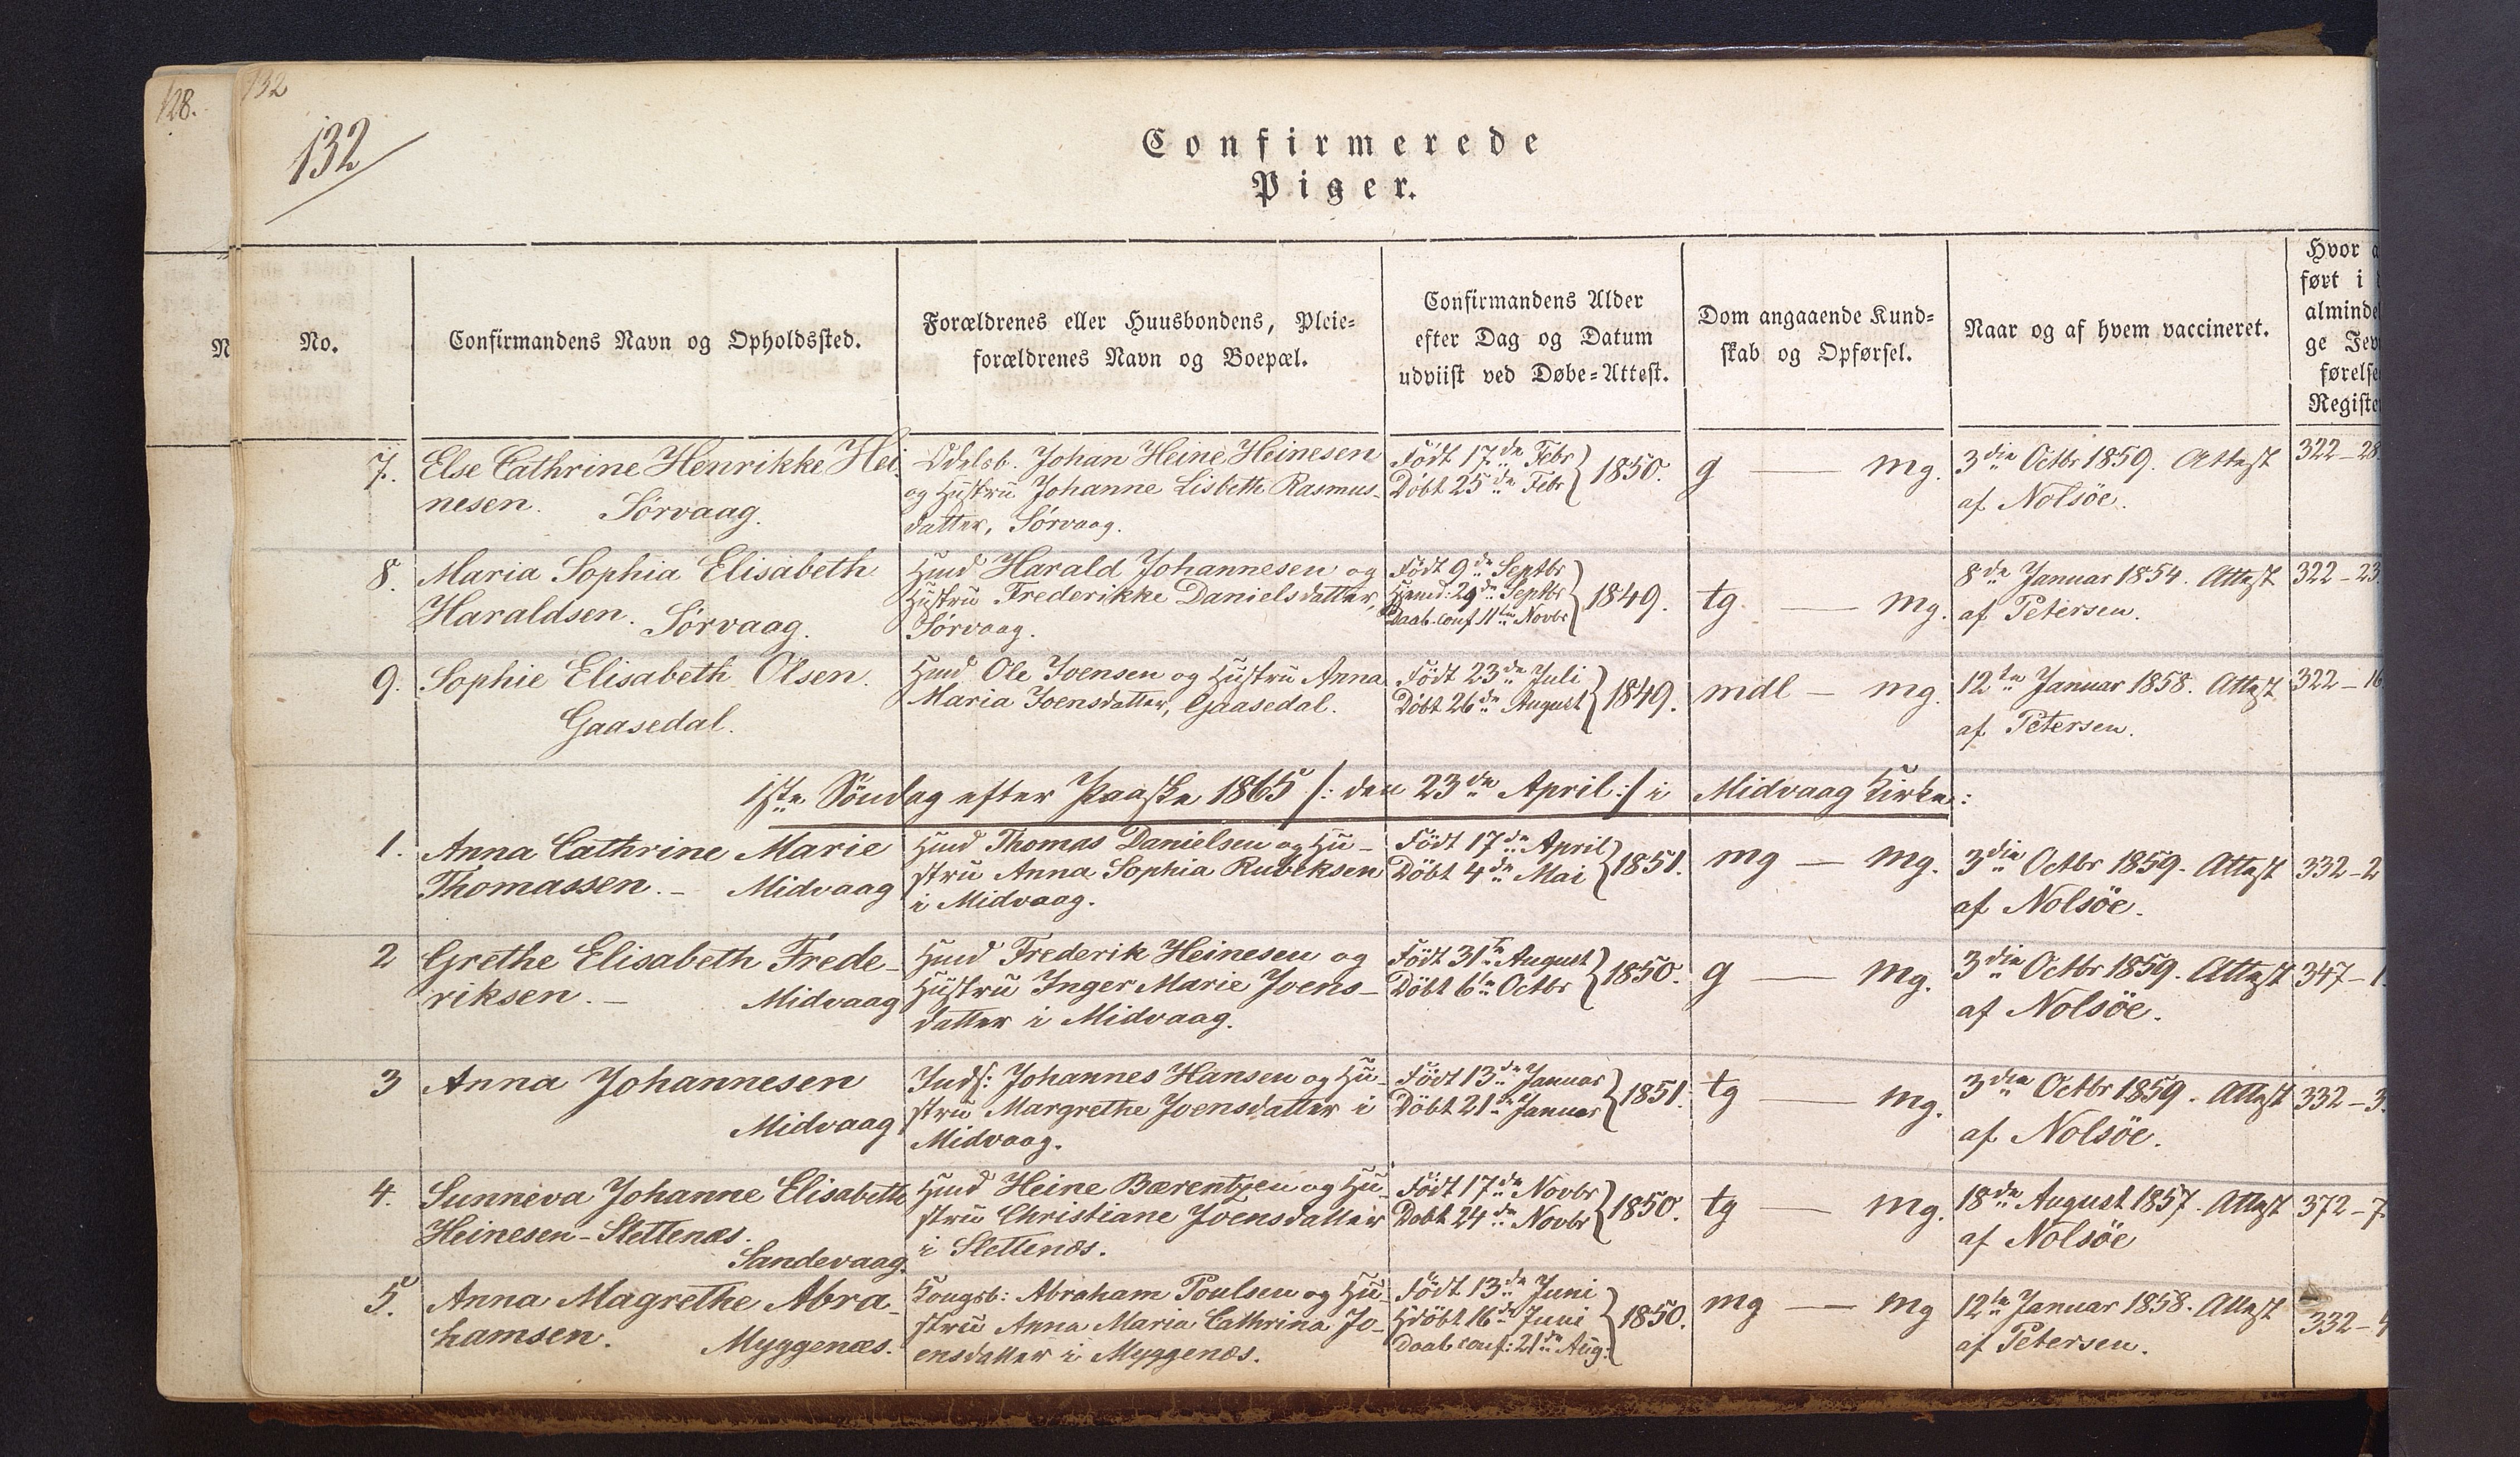 128.
132
132
Confirmerede
Piger.
N
No.
Confirmandens Navn og Opholdssted.
Forældrenes eller Huusbondens, Pleie-
forældrenes Navn og Boepæl.
Confirmandens Alder
efter Dag og Datum
udviist ved Døbe-Attest.
Dom angaaende Kund-
skab og Opførsel.
Naar og af hvem vaccineret.
Hvor a
ført i
alminde
ge Jev
førelse
Registe
7. Else Cathrine Henrikke Hei
nesen. Sörvaag.
Odelsb. Johan Heine Heinesen
og Hustru Johanne Lisbeth Rasmus-
datter, Sörvaag.
Födt 17de Febr
Döbt 25de Febr } 1850.
g — mg.
3die Octbr 1859. Attest
af Nolsöe.
322-28
8. Maria Sophia Elisabeth
Haraldsen. Sörvaag.
Hmd Harald Johannesen og
Hustru Frederikke Danielsdatter,
Sörvaag.
Födt 9de Septbr
Hjemd: 29de Septbr
Daab. conf 11te Novbr } 1849.
tg. — mg.
8de Januar 1854. Attest
af Petersen.
322-23.
9. Sophie Elisabeth Olsen.
Gaasedal.
Hmd Ole Joensen og Hustru Anna
Maria Joensdatter, Gaasedal.
Födt 23de Juli
Döbt 26de August } 1849.
mdl — mg.
12te Januar 1858. Attest
af Petersen.
322-16
1ste Söndag efter Paaske 1865 /: den 23de April :/ i Midvaag Kirke:
1. Anna Cathrine Marie
Thomassen. - Midvaag
Hmd Thomas Danielsen og Hu-
stru Anna Sophia Rubeksen
i Midvaag.
Födt 17de April
Döbt 4de Mai } 1851.
mg — mg.
3die Octbr 1859. Attest
af Nolsöe.
332-2
2 Grethe Elisabeth Frede-
riksen. - Midvaag
Hmd Frederik Heinesen og
Hustru Inger Marie Joens-
datter i Midvaag.
Födt 31te August
Döbt 6te Octbr } 1850.
g — mg.
3die Octbr 1859. Attest
af Nolsöe.
347-1.
3 Anna Johannesen
Midvaag
Inds: Johannes Hansen og Hu-
stru Margrethe Joensdatter i
Midvaag.
Födt 13de Januar
Döbt 21de Januar } 1851.
tg — mg.
3die Octbr 1859. Attest
af Nolsöe.
332-3.
4. Sunneva Johanne Elisabeth
Heinesen-Slettenæs.
Sandevaag.
Hmd Heine Bærentzen og Hu-
stru Christiane Joensdatter
i Slettenæs.
Födt 17de Novbr
Döbt 24de Novbr } 1850.
tg — mg.
18de August 1857. Attest
af Nolsöe
372-7
5. Anna Magrethe Abra-
hamsen. Myggenæs.
Kongsb: Abraham Poulsen og Hu-
stru Anna Maria Cathrina Jo-
ensdatter i Myggenæs.
Födt 13de Juni
Hdöbt 16de Juni
Daab. conf: 21de Aug: } 1850.
mg — mg
12te Januar 1858. Attest
af Petersen.
332-4